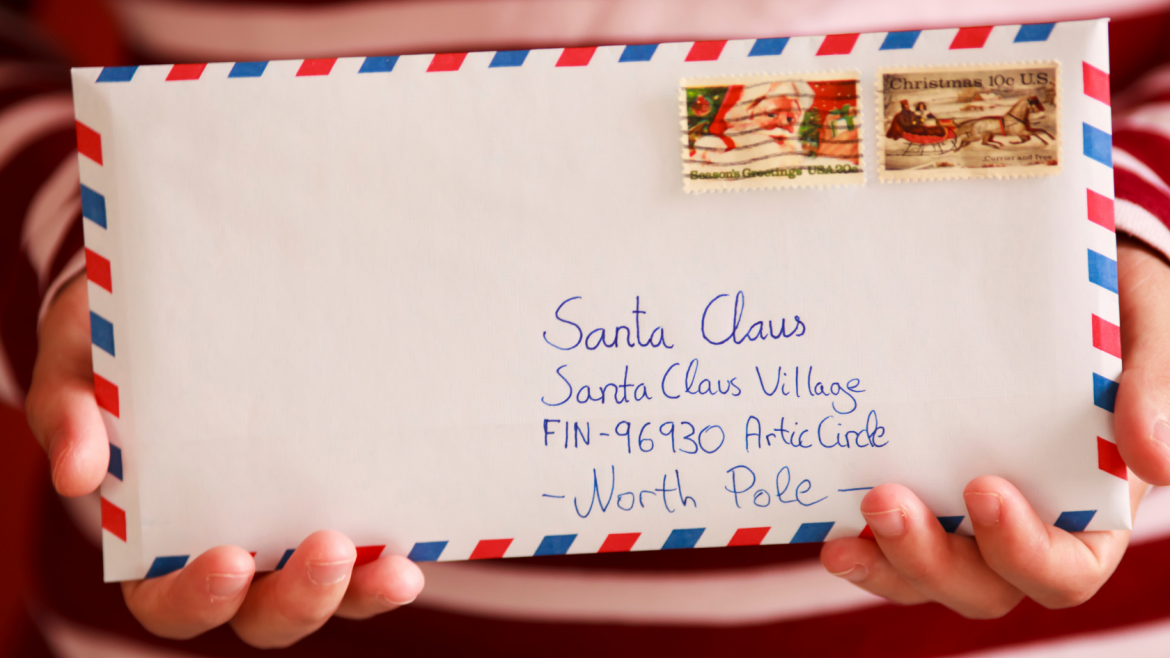 Christmas 10c U.S.
Currier and Ives
Season's Greetings USA 20c
Santa Claus
Santa Claus Village
FIN-96930 Artic Circle
-North Pole-